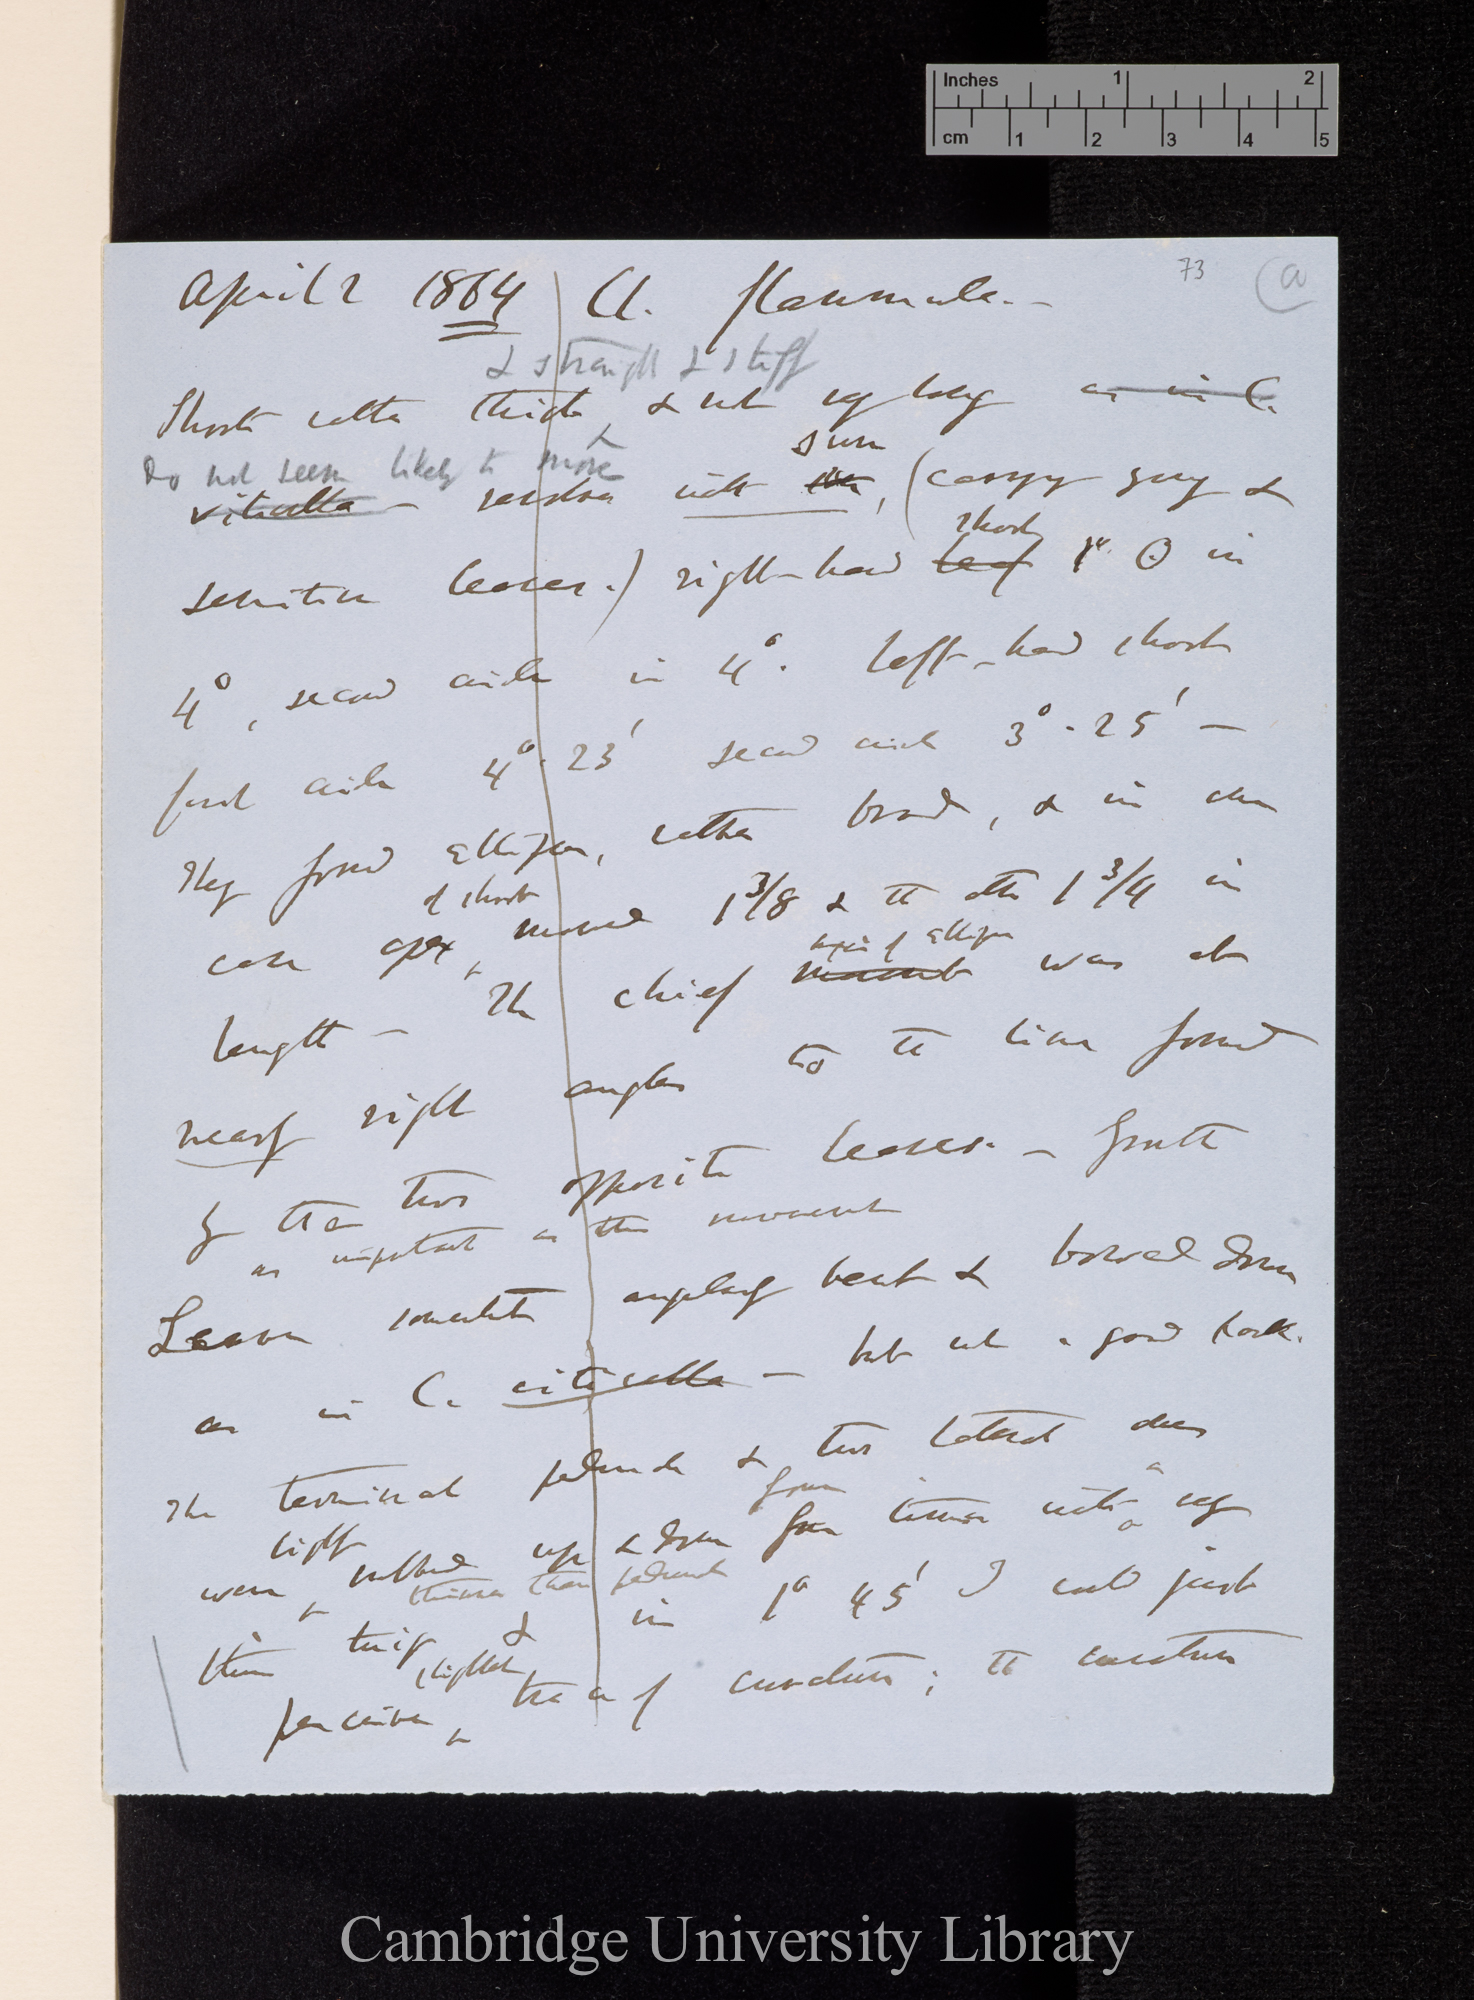 Inches 1 2
cm 1 2 3 4 5
73 (a
April 2 1864 Cl. flammula.—
& straight & stiff
Shoots rather thick & not very long as in C.
Do not seem likely to move
viticella — revolve with sun, (carry grey &
sensitive leaves.) right-hand leaf shoot 1st ʘ in
4°, second circle in 4°. Left-hand shoot
first circle 4°. 23' second circle 3°. 25' —
They formed ellipses, rather broad, & in one
case apex of shoot moved 1 3/8 & the other 1 3/4 in
length — The chief axis of ellipse was at
nearly right angles to the line formed
by the two opposite leaves. — Growth
as important as the movement
Leaves somewhat angularly bent & bowed down
as in C. viticella — but not a good hook.
The terminal petiole & two lateral ones
were lightly rubbed up & down four times with a very
thinner than petiole
thin twig & in 1° 45' I could just
perceive slightest trace of curvature; the curvature
Cambridge University Library